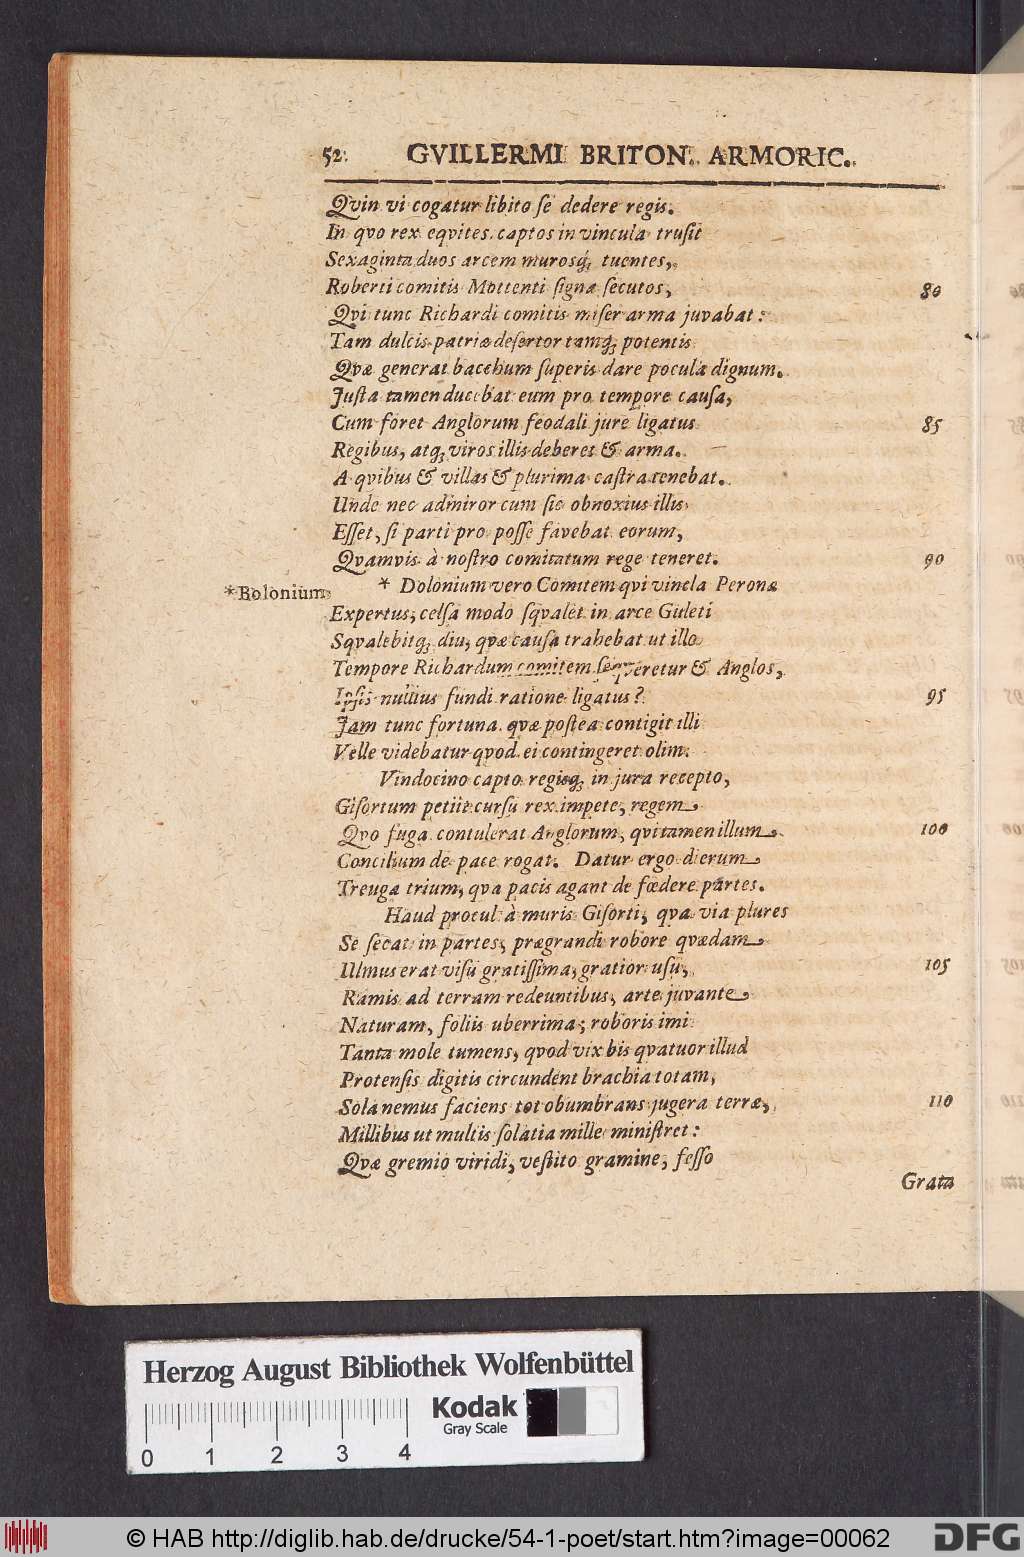 52. GVILLERMI BRITON. ARMORIC.
Qvin vi cogatur libito se dedere regis.
In qvo rex eqvites captos in vincula trusit
Sexaginta duos arcem murosq; tuentes,
Roberti comitis Mottenti signa secutos, 80
Qvi tunc Richardi comitis miser arma juvabat:
Tam dulcis patriæ desertor tamq; potentis
Qvæ generat bacchum superis dare pocula dignum.
Justa tamen ducebat eum pro tempore causa,
Cum foret Anglorum feodali jure ligatus 85
Regibus, atq; viros illis deberet & arma.
A qvibus & villas & plurima castra tenebat.
Unde nec admiror cum sic obnoxius illis
Esset, si parti pro posse favebat eorum,
Qvamvis à nostro comitatum rege teneret. 90
*Bolonium * Dolonium vero Comitem qvi vincla Peronæ
Expertus, celsa modo sqvalet in arce Guleti
Sqvalebitq; diu, qvæ causa trahebat ut illo
Tempore Richardum comitem seqveretur & Anglos,
Ipsis nullius fundi ratione ligatus? 95
Jam tunc fortuna qvæ postea contigit illi
Velle videbatur qvod ei contingeret olim.
Vindocino capto regisq; in jura recepto,
Gisortum petiit cursu rex impete, regem
Qvo fuga contulerat Anglorum, qvi tamen illum 100
Concilium de pace rogat. Datur ergo dierum
Treuga trium, qva pacis agant de fœdere partes.
Haud procul à muris Gisorti, qva via plures
Se secat in partes, prægrandi robore qvædam
Ulmus erat visu gratissima, gratior usu, 105
Ramis ad terram redeuntibus, arte juvante
Naturam, foliis uberrima; roboris imi
Tanta mole tumens, qvod vix bis qvatuor illud
Protensis digitis circundent brachia totam,
Sola nemus faciens tot obumbrans jugera terræ, 110
Millibus ut multis solatia mille ministret:
Qvæ gremio viridi, vestito gramine, fesso
Grata
Herzog August Bibliothek Wolfenbüttel
Kodak
Gray Scale
0 1 2 3 4
© HAB http://diglib.hab.de/drucke/54-1-poet/start.htm?image=00062
DFG